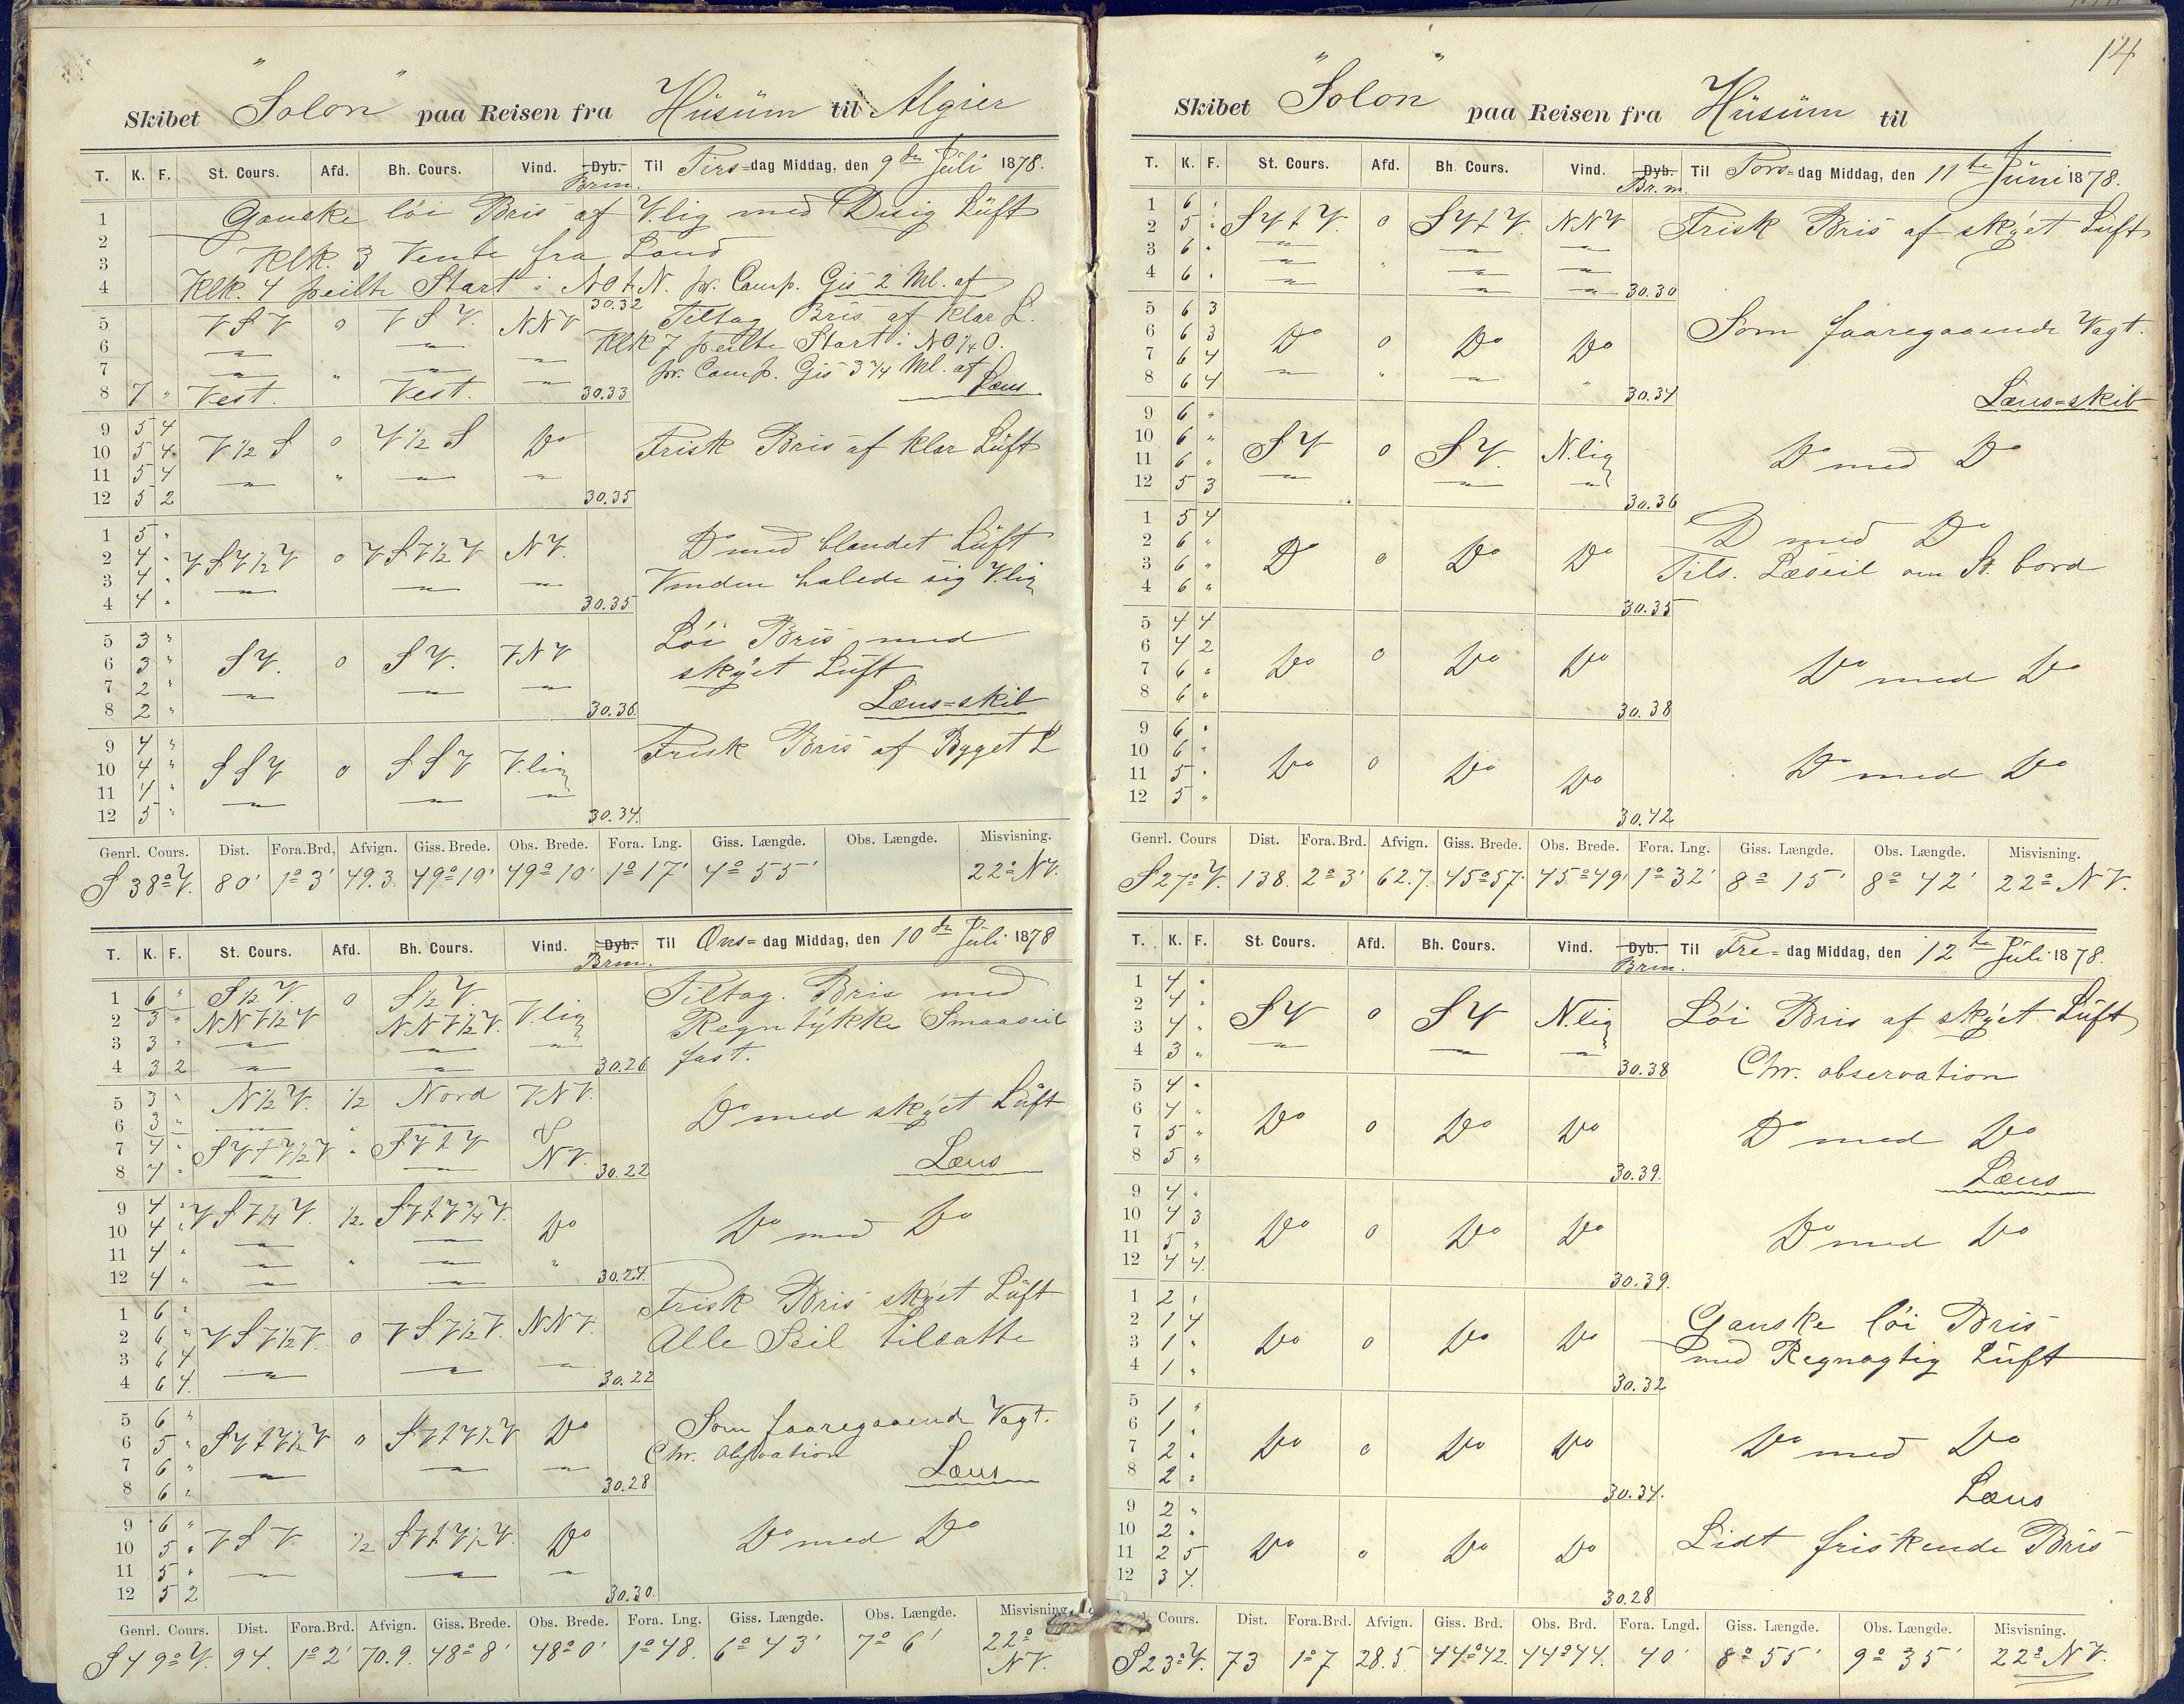 Skibet "Solon" paa Reisen fra Hüsüm til Algier
T. K. F. St. Cours. Afd. Bh. Cours. Vind. Dyb. Brm. Til Tirs=dag Middag, den 9de Jüli 1878.
1 Ganske löi Bris af V.lig med Disig Lüft
2
3 Klk. 3 Vendte fra Land
4 Klk. 4 peilte Start i NOtN. pr. Comp. Gis 2 Ml. af
30.32
5 VSV 0 VSV. NNV Tiltag Bris af klar L.
6 Klk 7 peilte Start i NO¼O.
7 pr. Comp. Gis 3¼ Ml. af
8 7 " Vest. Vest. 30.33 Læns
9 5 4
10 5 4 V½S 0 V½S Do Frisk Bris af klar Lüft
11 5 4
12 5 2 30.35
1 5 "
2 4 " VSV½V 0 VSV½V NV. Do med blandet Lüft
3 4 " Vinden halede sig V.lig
4 4 " 30.35
5 3 " Löi Bris med
6 3 " SV. 0 SV. VNV skÿet Lüft
7 2 "
8 2 " 30.36 Læns=skib
9 4 " Frisk Bris af Bygget L
10 4 " SSV 0 SSV V.lig
11 4 "
12 5 " 30.34
Genrl. Cours. Dist. Fora.Brd, Afvign. Giss. Brede. Obs. Brede. Fora. Lng. Giss. Længde. Obs. Længde. Misvisning.
S 38° V. 80' 1° 3' 49.3. 49° 19' 49° 10' 1° 17' 4° 55' 22° NV.
T. K. F. St. Cours. Afd. Bh. Cours. Vind. Dyb. Brm. Til Ons=dag Middag, den 10de Jüli 1878
1 6 " S½V. 0 S½V. Tiltag. Bris med
2 3 " NNV½V NNV½V. V.lig Regntÿkke Smaaseil
3 3 " fast.
4 3 2 30.26
5 3 " N½V. ½ Nord VNV.
6 3 " Do med skÿet Lüft
7 4 " SVtV½V " SVtV
8 4 " NV. 30.22 Læns
9 4 " VSV¼V. ½ SVtV¼V.
10 4 " Do Do med Do
11 4 "
12 4 " 30.27.
1 6 " Frisk Bris skÿet Lüft
2 6 " VSV½V. 0 VSV½V. NNV. Alle Seil tilsatte
3 6 4
4 6 4. 30.22
5 6 " Som foaregaaende Vagt.
6 5 " SVtV½V 0 SVtV½V Do Chr. Observation
7 6 " Læns
8 6 " 30.28
9 6 "
10 5 " VSV. ½ SVtV½V. Do Do med Do
11 5 "
12 5 2 30.30.
Genrl. Cours. Dist. Fora.Brd. Afvign. Giss. Brede. Obs. Brede. Fora. Lng. Giss. Længde. Obs. Længde. Misvisning.
S 49° V. 94. 1° 2' 70.9. 48° 8' 48° 0' 1° 48. 6° 43' 7° 6' 22° NV.
14
Skibet "Solon" paa Reisen fra Hüsüm til
T. K. F. St. Cours. Afd. Bh. Cours. Vind. Dyb. Br.m. Til Tors=dag Middag, den 11te Jüni 1878.
1 6 "
2 5 " SVtV. 0 SVtV. NNV Frisk Bris af skÿet Lüft
3 6 "
4 6 " 30.30
5 6 3
6 6 3 Do 0 Do Do Som faaregaaende Vagt.
7 6 4
8 6 4 30.34 Læns=skib
9 6 "
10 6 " SV 0 SV. N.lig Do med Do
11 6 "
12 5 3 30.36
1 5 4 Do med Do
2 6 " Do 0 Do Do
3 6 " Tils. Læseil om St. bord
4 6 " 30.35
5 4 4
6 4 2 Do 0 Do Do Do med Do
7 6 "
8 6 " 30.38
9 6 "
10 6 " Do 0 Do Do Do med Do
11 5 "
12 5 " 30.42
Genrl. Cours Dist. Fora.Brd. Afvign. Giss. Brede. Obs. Brede. Fora. Lng. Giss. Længde. Obs. Længde. Misvisning.
S 27° V. 138. 2° 3' 62.7. 45° 57' 45° 49' 1° 32' 8° 15' 8° 42' 22° NV.
T. K. F. St. Cours. Afd. Bh. Cours. Vind. Dyb. Brm. Til Fre=dag Middag, den 12te Jüli 1878.
1 4 "
2 4 " SV 0 SV N.lig Löi Bris af skÿet Lüft
3 4 "
4 3 " 30.38 Chr. observation
5 4 "
6 4 " Do 0 Do Do Do med Do
7 5 "
8 5 " 30.39. Læns
9 4 "
10 4 3 Do 0 Do Do Do med Do
11 5 "
12 4 4. 30.39.
1 2 " Ganske löi Bris
2 1 4 Do 0 Do Do med Regnagtig Lüft
3 1 "
4 1 " 30.32
5 1 "
6 1 " Do 0 Do Do Do med Do
7 2 "
8 2 " 30.34. Læns
9 2 "
10 2 " Do 0 Do Do Lidt friskende Bris
11 2 5
12 3 4. 30.28
Cours. Dist. Fora.Brd. Afvign. Giss. Brd. Obs. Brd. Fora. Lngd. Giss. Længde. Obs. Længde. Misvisning.
S 23° V. 73 1° 7 28.5. 44° 42. 44° 44. 40' 8° 55' 9° 35' 22° NV.